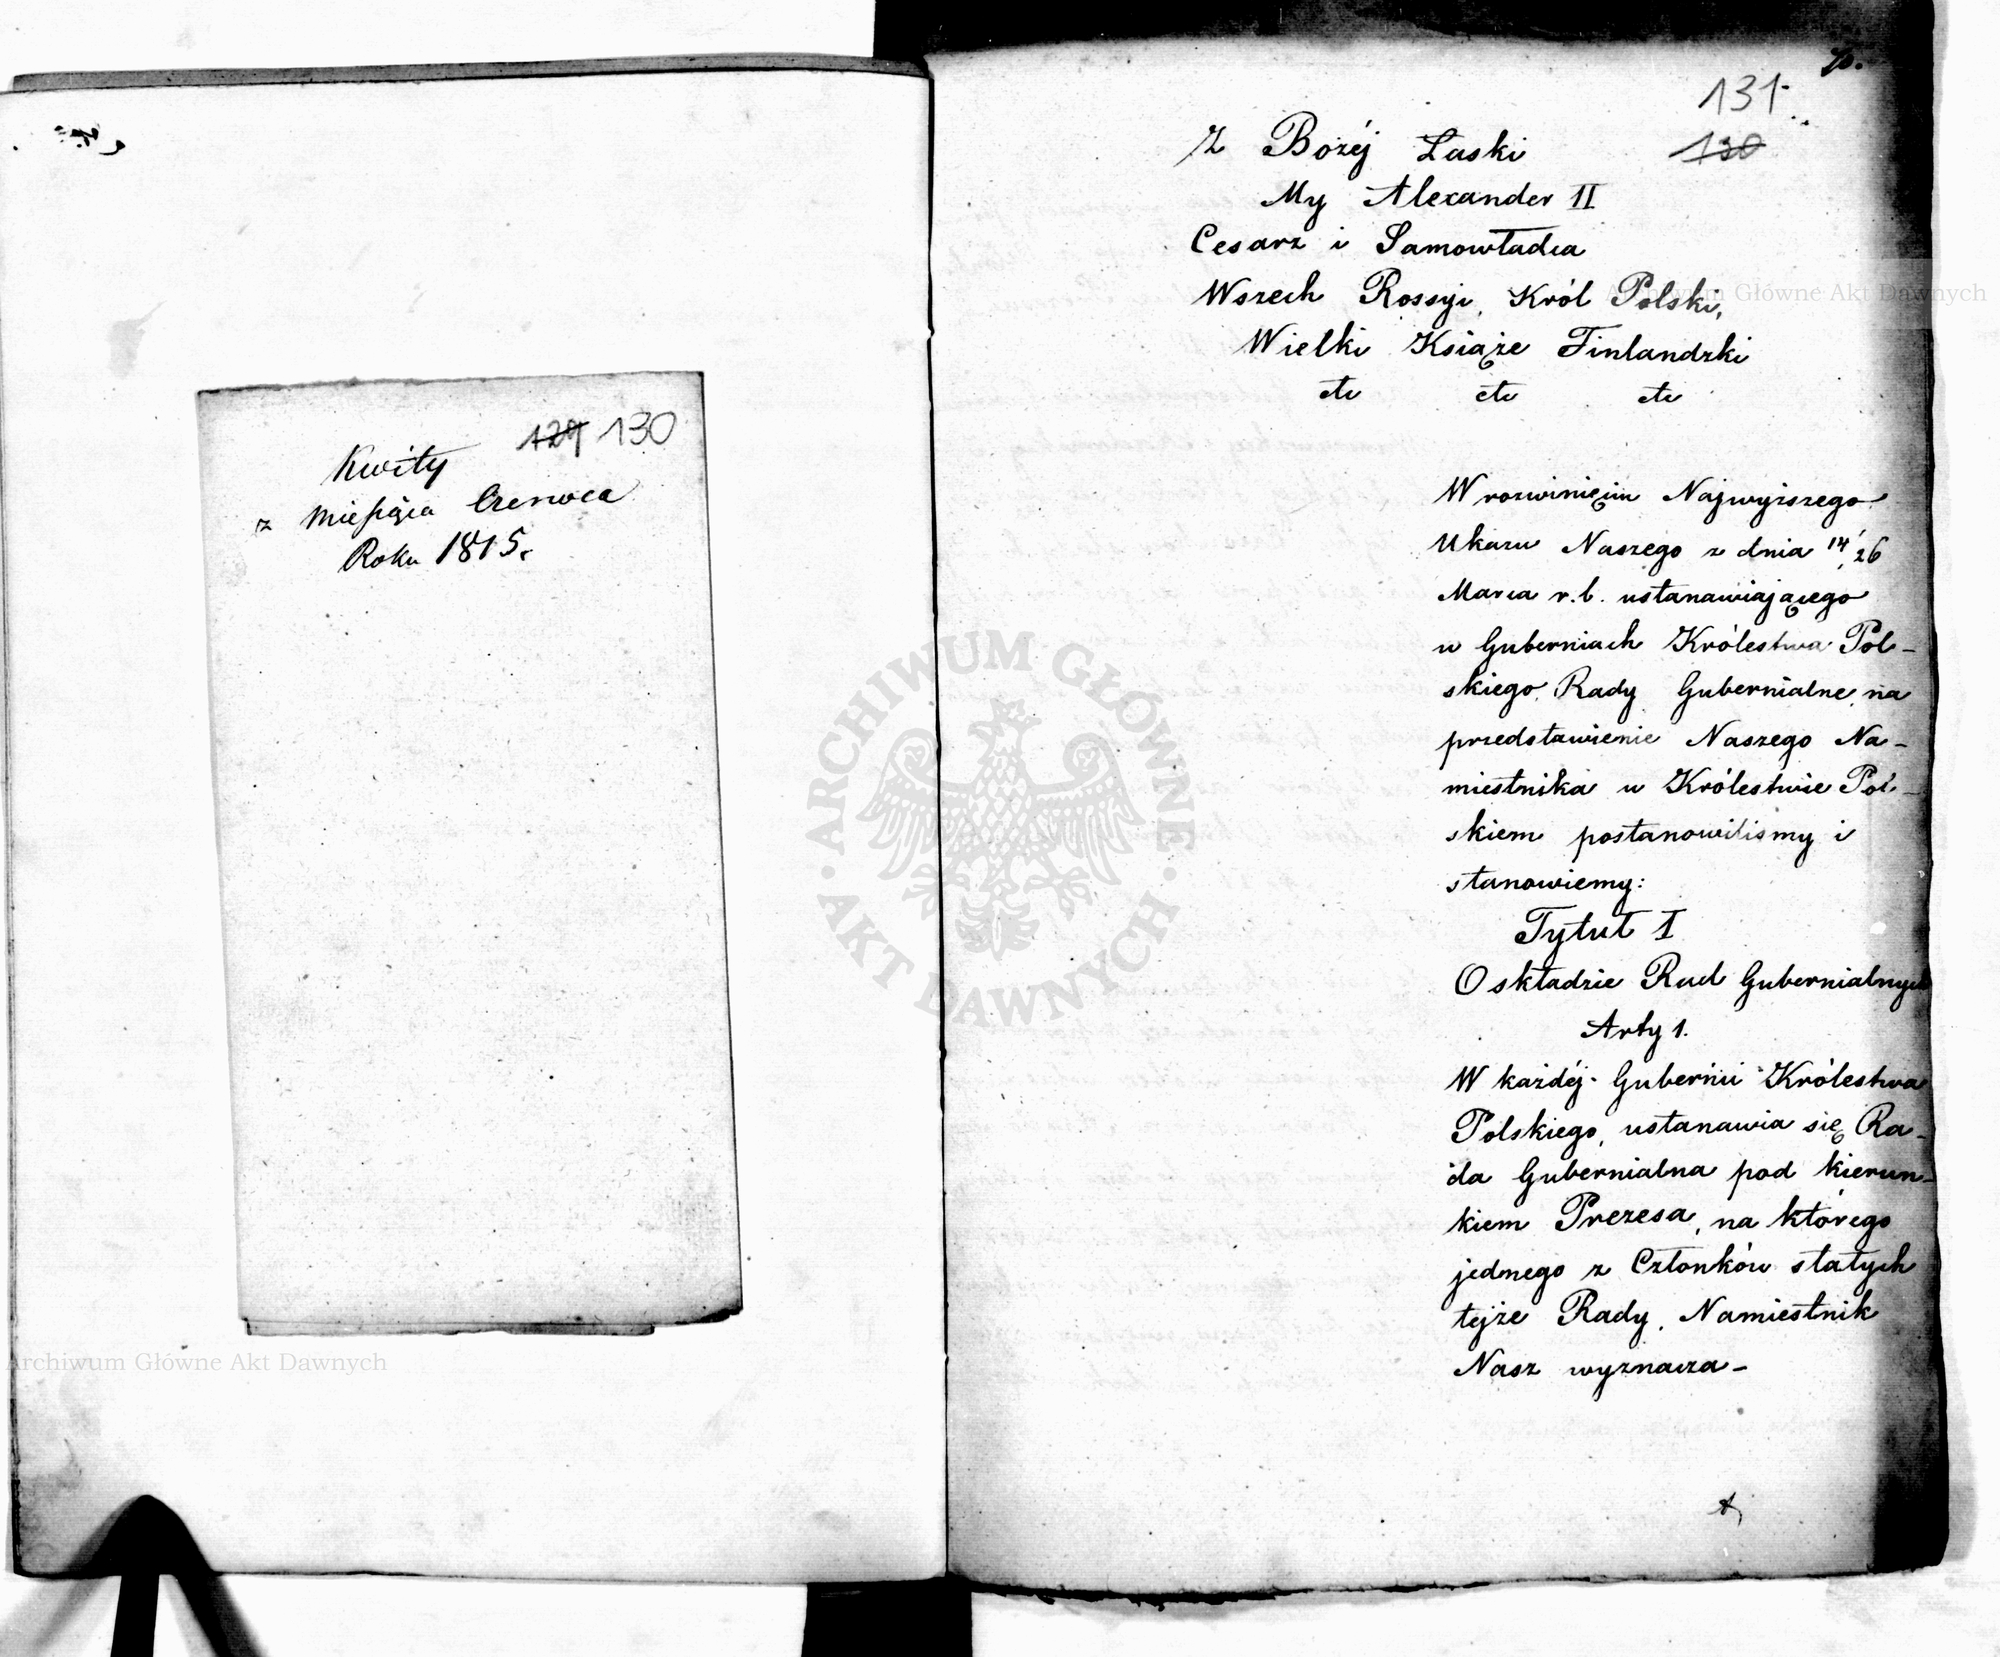 129 130
Kwity
z Miesiąca Czerwca
Roku 1815.
131
130
Z Bożéj Łaski
My Alexander II
Cesarz i Samowładca
Wszech Rossyi, Król Polski,
Wielki Książe Finlandzki
etc etc etc
W rozwinięciu Najwyższego
Ukazu Naszego z dnia 14/26
Marca r.b. ustanawiającego
w Guberniach Królestwa Pol-
skiego Rady Gubernialne, na
przedstawienie Naszego Na-
miestnika w Królestwie Pol-
skiem postanowiliśmy i
stanowiemy:
Tytuł I
O składzie Rad Gubernialnych
Arty 1.
W każdéj Gubernii Królestwa
Polskiego, ustanawia się Ra-
da Gubernialna pod kierun-
kiem Prezesa, na którego
jednego z Członków stałych
tejże Rady, Namiestnik
Nasz wyznacza-
ARCHIWUM GŁÓWNE AKT DAWNYCH
Archiwum Główne Akt Dawnych
Archiwum Główne Akt Dawnych